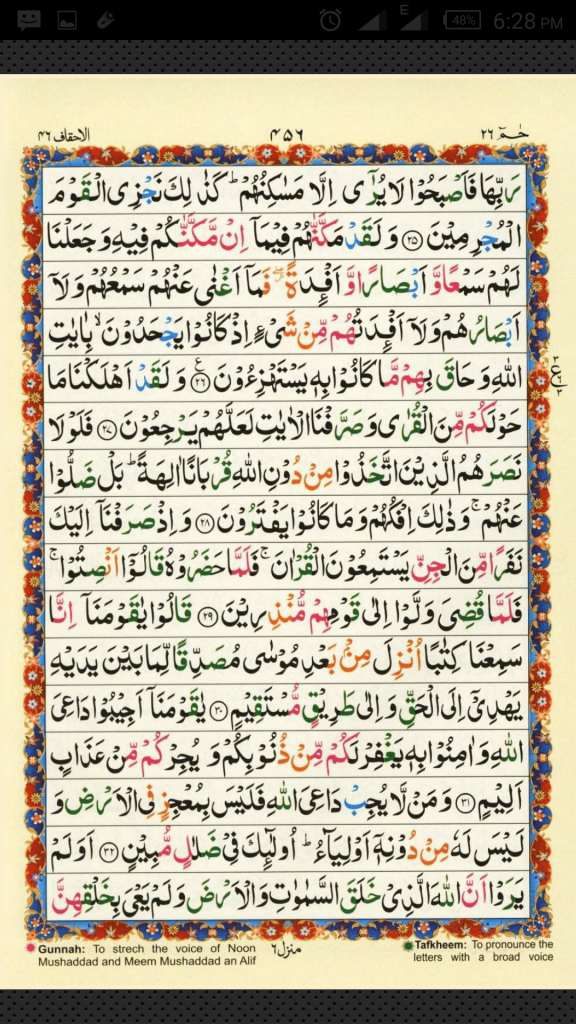 E 48% 6:28 PM
حٰمٓ ٢٦ ٤٥٦ الاحقاف ٤٦
رَبِّهَا فَاَصْبَحُوْا لَا يُرٰٓى اِلَّا مَسٰكِنُهُمْ ؕ كَذٰلِكَ نَجْزِى الْقَوْمَ
الْمُجْرِمِيْنَ ﴿٢٥﴾ وَلَقَدْ مَكَّنّٰهُمْ فِيْمَاۤ اِنْ مَّكَّنّٰكُمْ فِيْهِ وَجَعَلْنَا
لَهُمْ سَمْعًا وَّاَبْصَارًا وَّاَفْـِٕدَةً ۖ فَمَاۤ اَغْنٰى عَنْهُمْ سَمْعُهُمْ وَلَاۤ
اَبْصَارُهُمْ وَلَاۤ اَفْـِٕدَتُهُمْ مِّنْ شَىْءٍ اِذْ كَانُوْا يَجْحَدُوْنَ ۙ بِاٰيٰتِ
اللّٰهِ وَحَاقَ بِهِمْ مَّا كَانُوْا بِهٖ يَسْتَهْزِءُوْنَ ﴿٢٦﴾ ع وَلَقَدْ اَهْلَكْنَا مَا
حَوْلَكُمْ مِّنَ الْقُرٰى وَصَرَّفْنَا الْاٰيٰتِ لَعَلَّهُمْ يَرْجِعُوْنَ ﴿٢٧﴾ فَلَوْلَا
نَصَرَهُمُ الَّذِيْنَ اتَّخَذُوْا مِنْ دُوْنِ اللّٰهِ قُرْبَانًا اٰلِهَةً ؕ بَلْ ضَلُّوْا
عَنْهُمْ ۚ وَذٰلِكَ اِفْكُهُمْ وَمَا كَانُوْا يَفْتَرُوْنَ ﴿٢٨﴾ وَاِذْ صَرَفْنَاۤ اِلَيْكَ
نَفَرًا مِّنَ الْجِنِّ يَسْتَمِعُوْنَ الْقُرْاٰنَ ۚ فَلَمَّا حَضَرُوْهُ قَالُوْۤا اَنْصِتُوْا ۚ
فَلَمَّا قُضِىَ وَلَّوْا اِلٰى قَوْمِهِمْ مُّنْذِرِيْنَ ﴿٢٩﴾ قَالُوْا يٰقَوْمَنَاۤ اِنَّا
سَمِعْنَا كِتٰبًا اُنْزِلَ مِنْۢ بَعْدِ مُوْسٰى مُصَدِّقًا لِّمَا بَيْنَ يَدَيْهِ
يَهْدِىْۤ اِلَى الْحَقِّ وَاِلٰى طَرِيْقٍ مُّسْتَقِيْمٍ ﴿٣٠﴾ يٰقَوْمَنَاۤ اَجِيْبُوْا دَاعِىَ
اللّٰهِ وَاٰمِنُوْا بِهٖ يَغْفِرْ لَكُمْ مِّنْ ذُنُوْبِكُمْ وَيُجِرْكُمْ مِّنْ عَذَابٍ
اَلِيْمٍ ﴿٣١﴾ وَمَنْ لَّا يُجِبْ دَاعِىَ اللّٰهِ فَلَيْسَ بِمُعْجِزٍ فِى الْاَرْضِ وَ
لَيْسَ لَهٗ مِنْ دُوْنِهٖۤ اَوْلِيَآءُ ؕ اُولٰٓئِكَ فِىْ ضَلٰلٍ مُّبِيْنٍ ﴿٣٢﴾ اَوَلَمْ
يَرَوْا اَنَّ اللّٰهَ الَّذِىْ خَلَقَ السَّمٰوٰتِ وَالْاَرْضَ وَلَمْ يَعْىَ بِخَلْقِهِنَّ
Gunnah: To strech the voice of Noon
Mushaddad and Meem Mushaddad an Alif
منزل ٦
Tafkheem: To pronounce the
letters with a broad voice